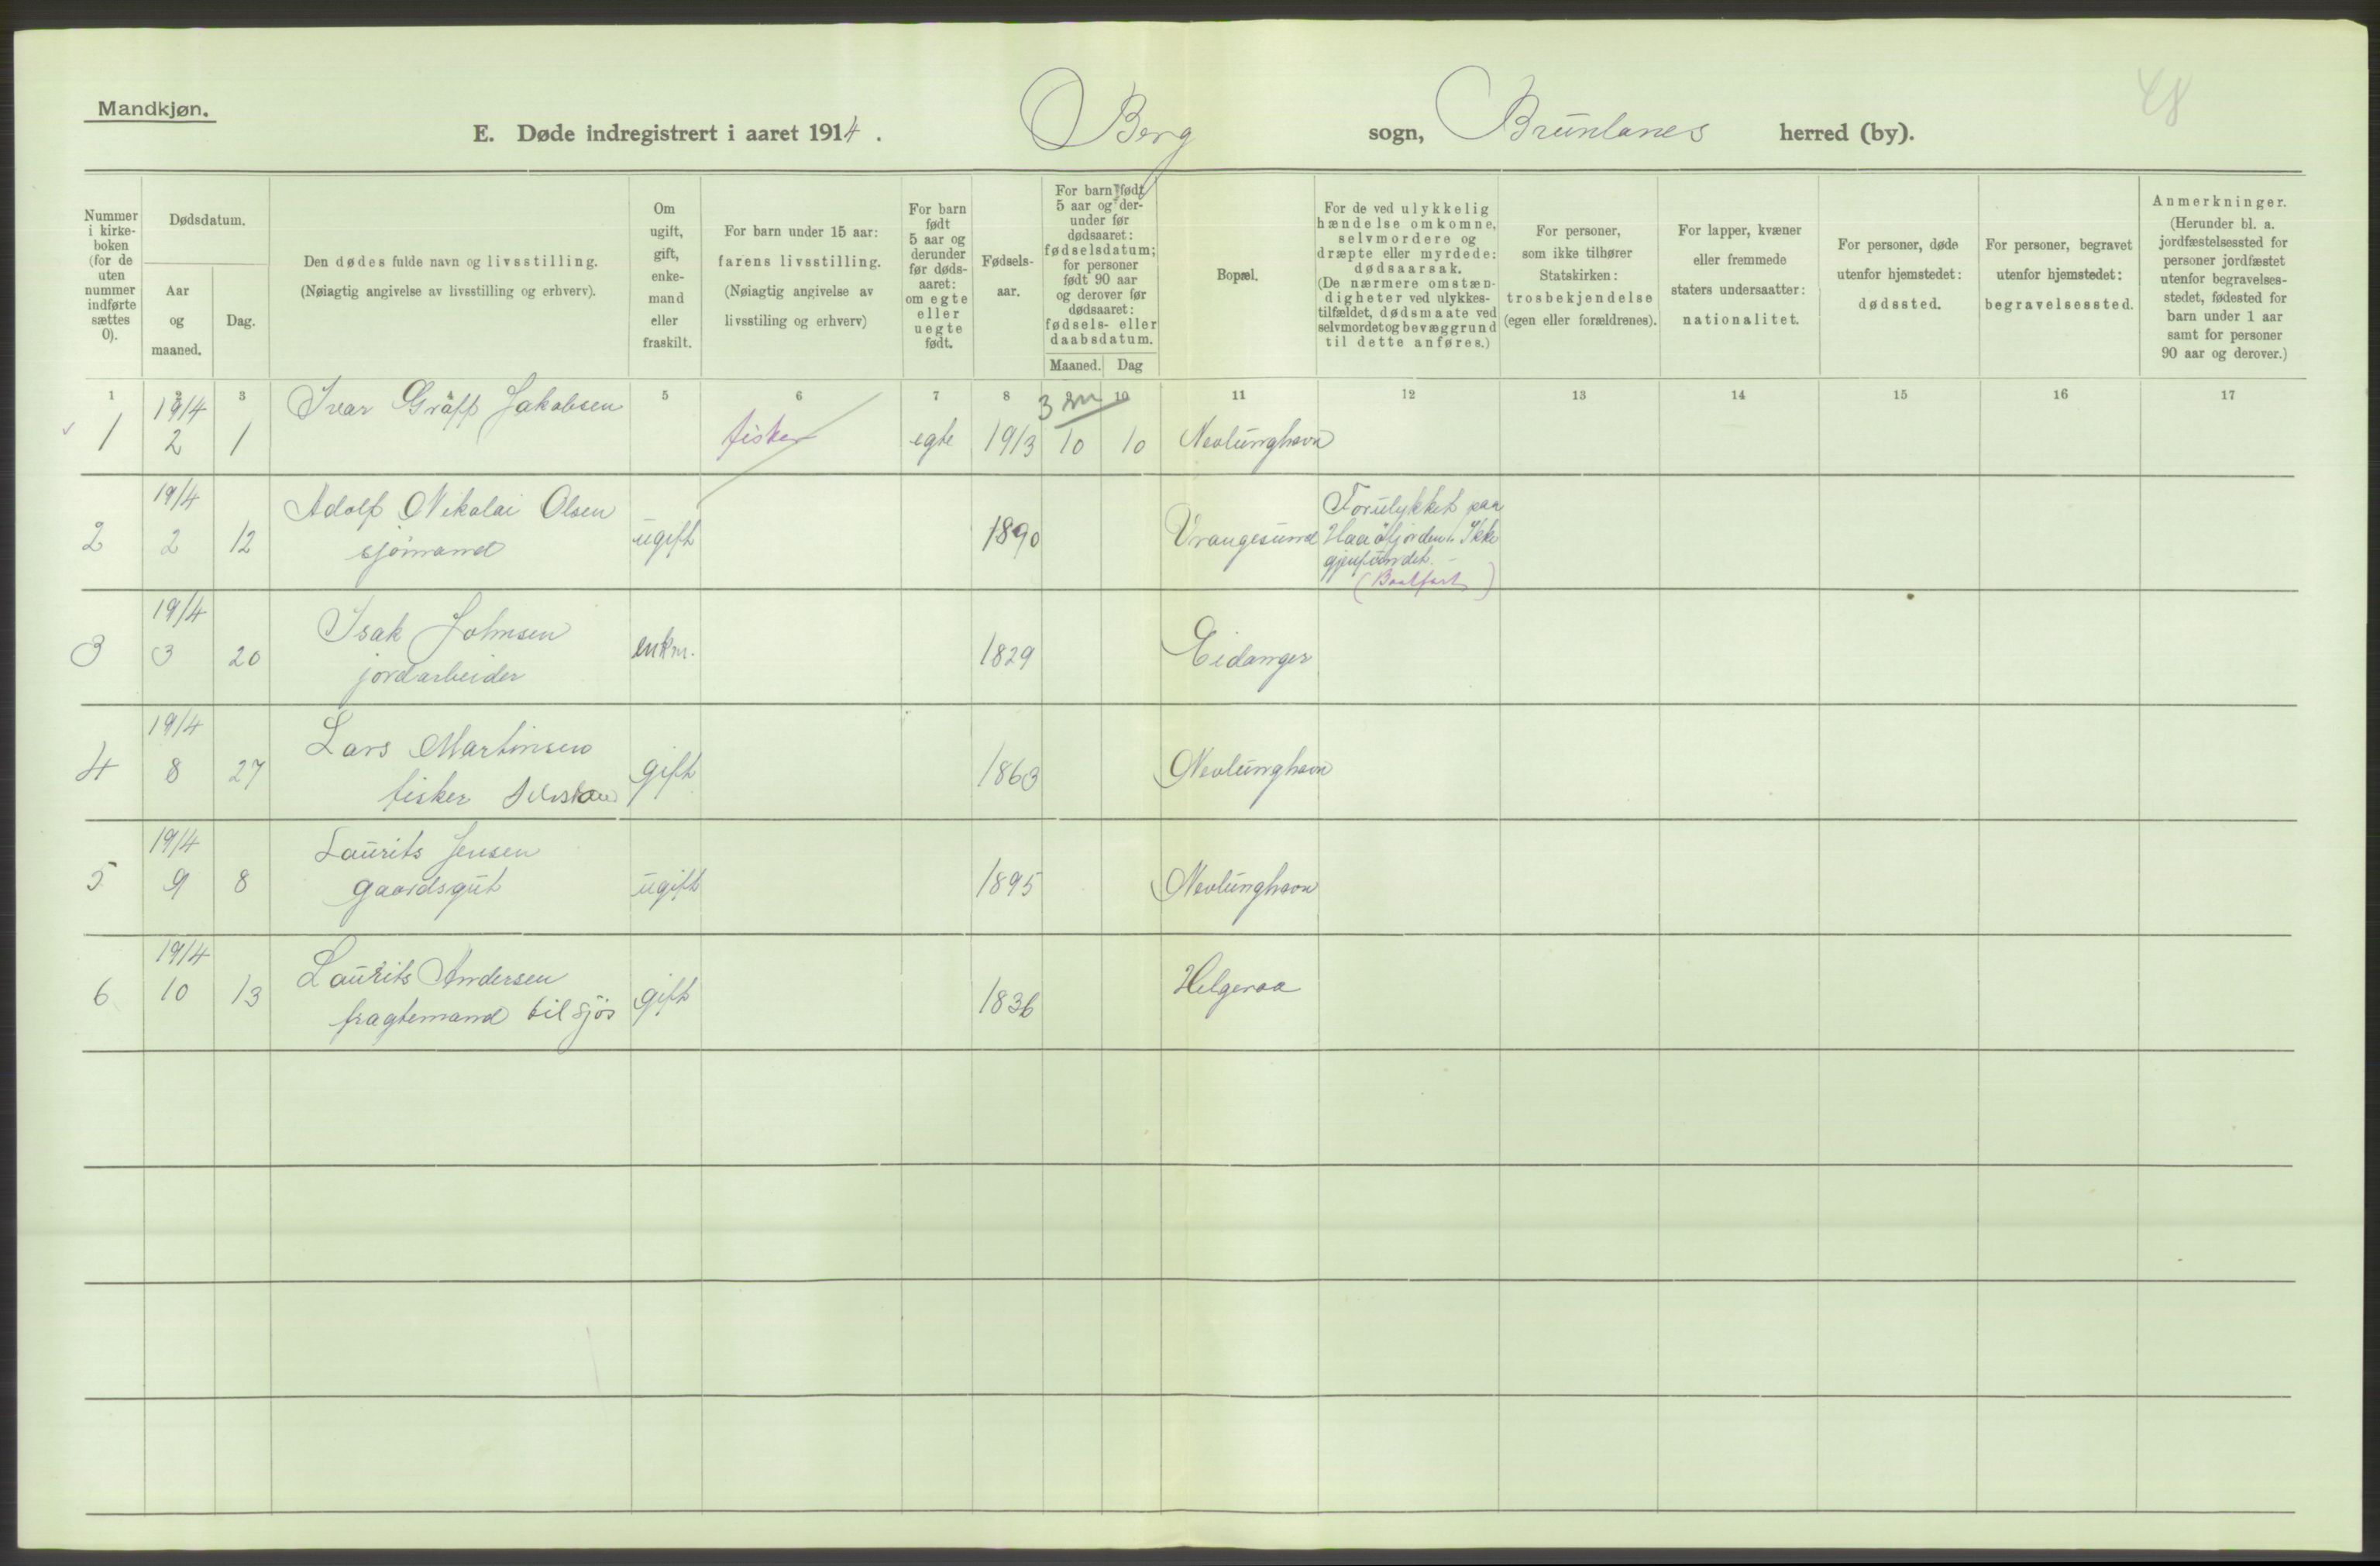 Mandkjøn.
48
E. Døde indregistrert i aaret 1914. Berg sogn, Brunlanes herred (by).
Nummer i kirke-boken (for de uten nummer indførte sættes 0).
Dødsdatum.
Aar og maaned.
Dag.
Den dødes fulde navn og livsstilling.
(Nøiagtig angivelse av livsstilling og erhverv).
Om ugift, gift, enke-mand eller fraskilt.
For barn under 15 aar: farens livsstilling.
(Nøiagtig angivelse av livsstiling og erhverv)
For barn født 5 aar og derunder før døds-aaret: om egte eller uegte født.
Fødsels-aar.
For barn født 5 aar og der-under før dødsaaret: fødselsdatum; for personer født 90 aar og derover før dødsaaret: fødsels- eller daabsdatum.
Maaned. Dag
Bopæl.
For de ved ulykkelig hændelse omkomne, selvmordere og dræpte eller myrdede: dødsaarsak.
(De nærmere omstæn-digheter ved ulykkes-tilfældet, dødsmaate ved selvmordet og bevæggrund til dette anføres.)
For personer, som ikke tilhører Statskirken: trosbekjendelse (egen eller forældrenes).
For lapper, kvæner eller fremmede staters undersaatter: nationalitet.
For personer, døde utenfor hjemstedet: dødssted.
For personer, begravet utenfor hjemstedet: begravelsessted.
Anmerkninger.
(Herunder bl. a. jordfæstelsessted for personer jordfæstet utenfor begravelses-stedet, fødested for barn under 1 aar samt for personer 90 aar og derover.)
1 2 3 4 5 6 7 8 9 10 11 12 13 14 15 16 17
1914 Ivar Graff Jakobsen 3 m
1 2 1 fisker egte 1913 10 10 Nevlunghavn
1914 Adolf Nikolai Olsen Forulykket paa
2 2 12 sjømand ugift 1890 Vrangesund Haaøfjorden. Ikke
gjenfundet. -
(Baatfart)
1914 Isak Johnsen
3 3 20 jordarbeider enkm. 1829 Eidanger
1914 Lars Martinsen
4 8 27 fisker gift 1863 Nevlunghavn
1914 Laurits Jensen
5 9 8 gaardsgut ugift 1895 Nevlunghavn
1914 Laurits Andersen
6 10 13 fragtemand til sjøs gift 1836 Helgeraa